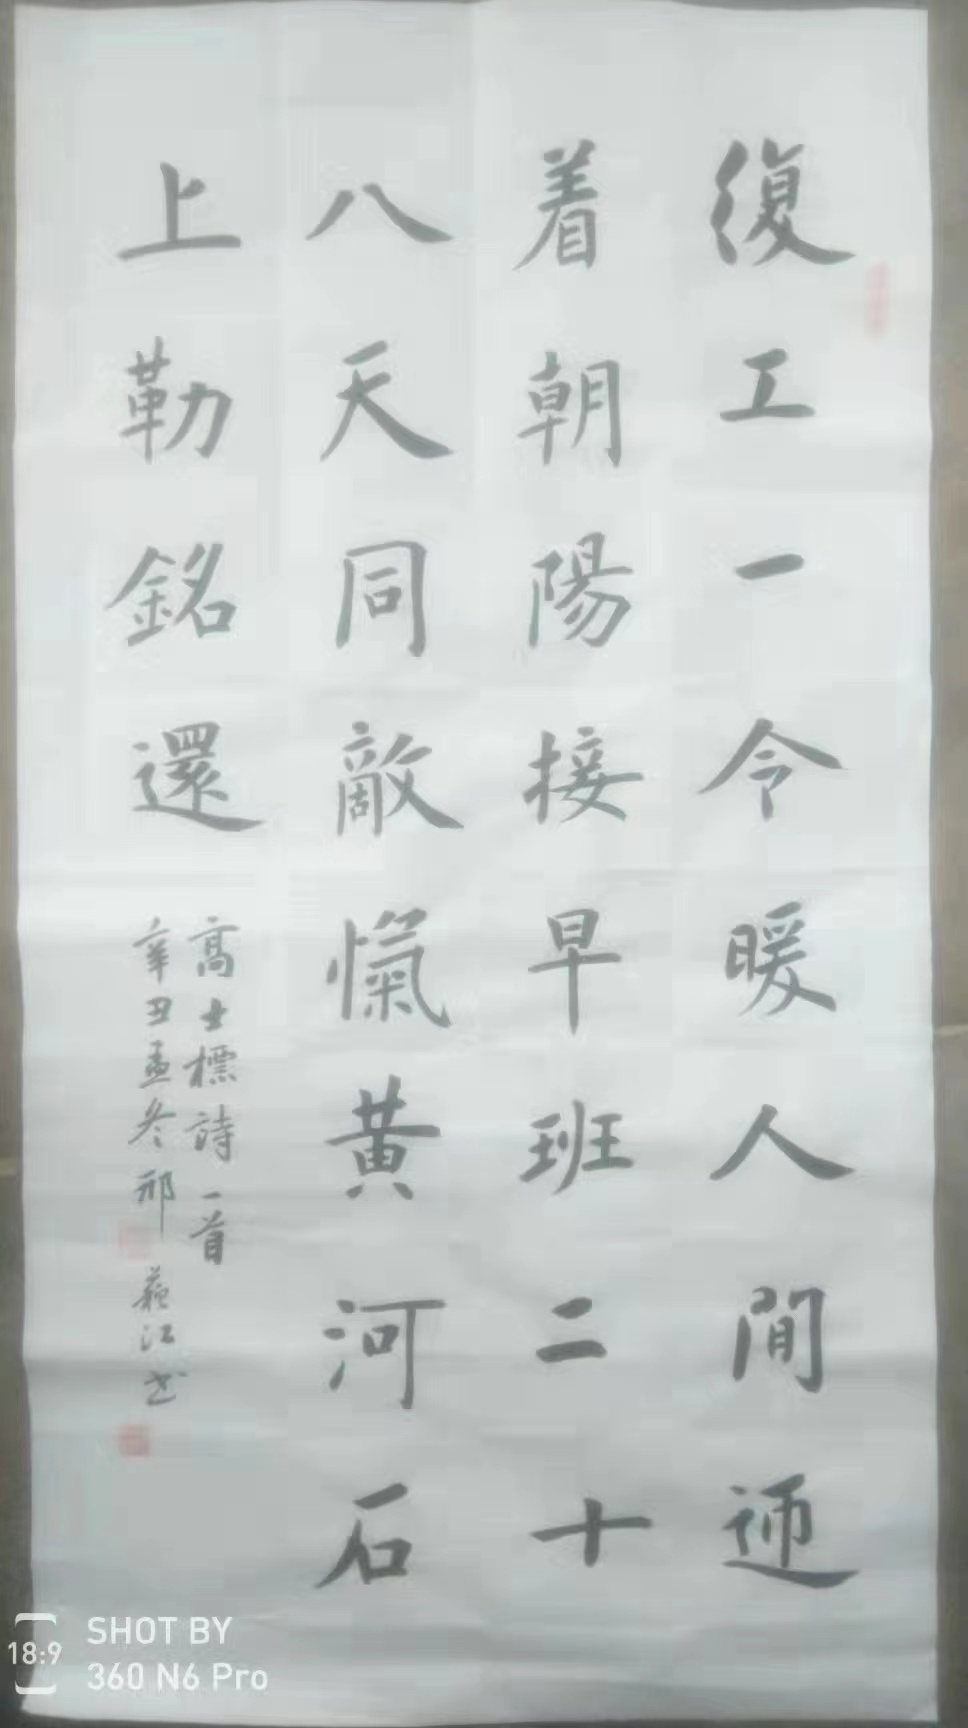 復工一令暖人間迊
着朝陽接早班二十
八天同敵愾黄河石
上勒銘還
高士標詩一首
辛丑孟冬邢蘇江书
SHOT BY
18:9
360 N6 Pro